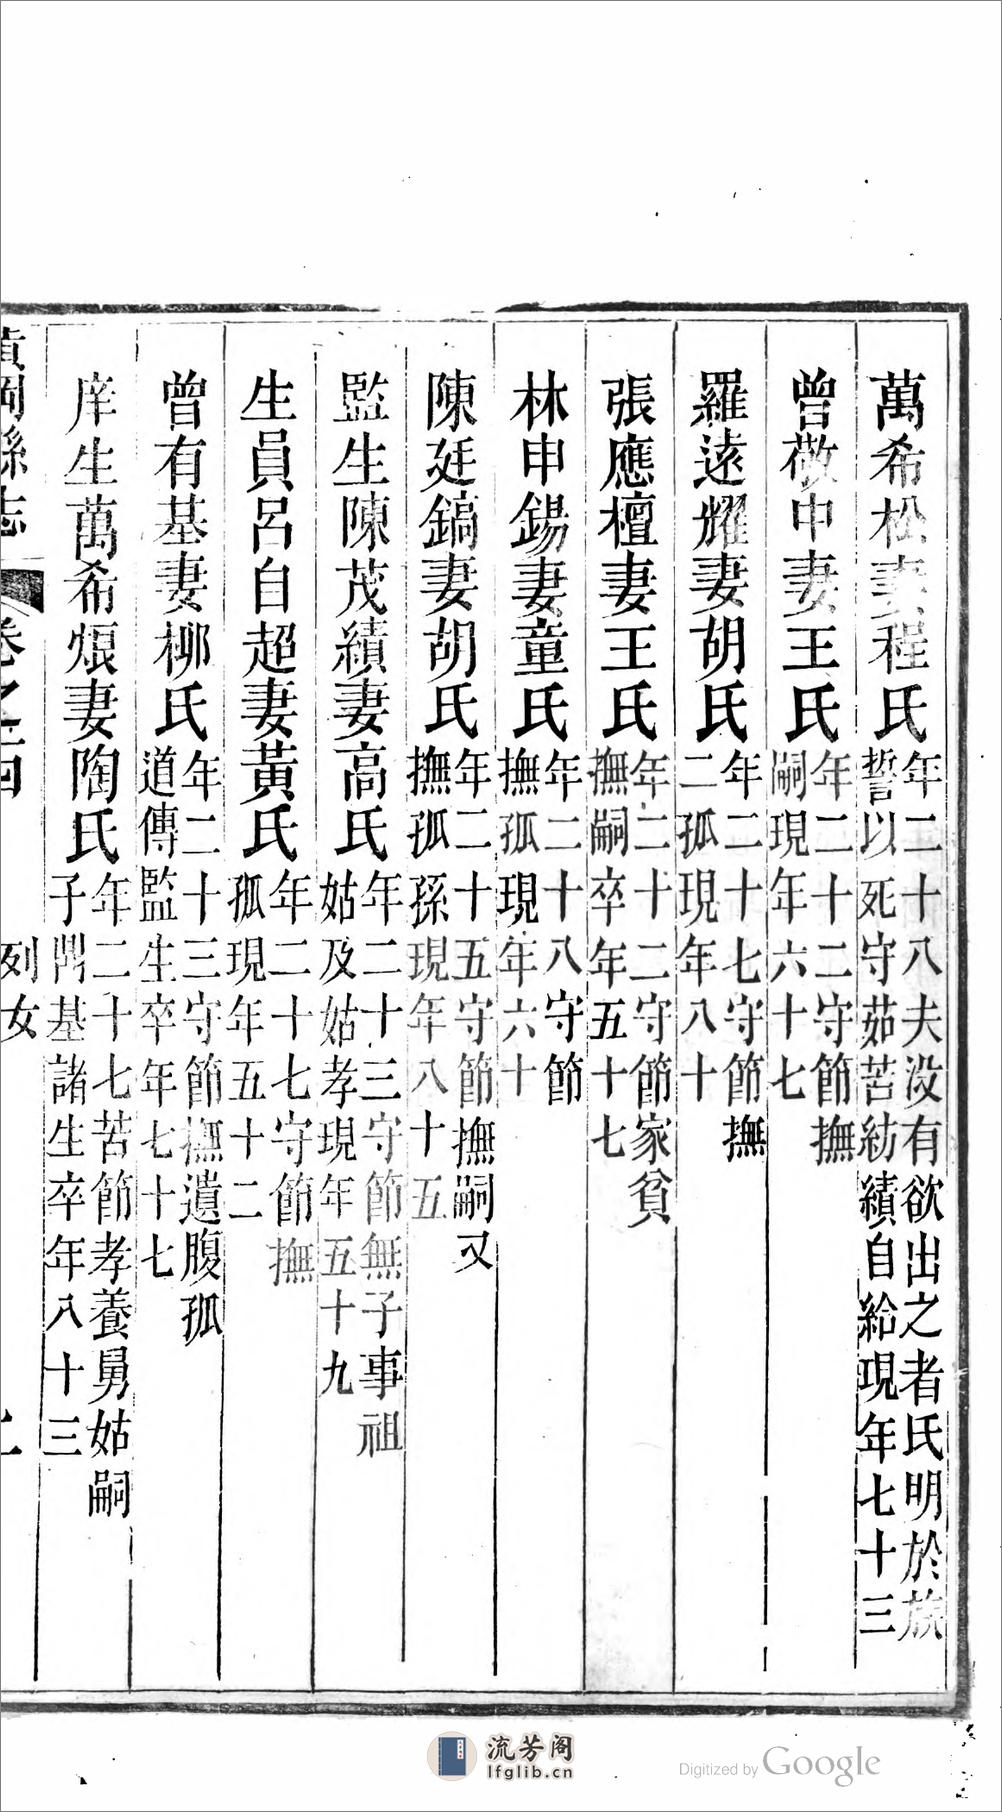 萬希松妻程氏年二十八夫没有欲出之者氏明於族
誓以死守茹苦紡績自給現年七十三
曾敬申妻王氏年二十二守節撫
嗣現年六十七
羅遠耀妻胡氏年二十七守節撫
二孤現年八十
張應檀妻王氏年二十二守節家貧
撫嗣卒年五十七
林申鍚妻童氏年二十八守節
撫孤現年六十
陳廷鎬妻胡氏年二十五守節撫嗣又
撫孤孫現年八十五
監生陳茂績妻高氏年二十三守節無子事祖
姑及姑孝現年五十九
生員呂自超妻黃氏年二十七守節撫
孤現年五十二
曾有基妻柳氏年二十三守節撫遺腹孤
道傳監生卒年七十七
庠生萬希烺妻陶氏年二十七苦節孝養舅姑嗣
子開基諸生卒年八十三
黃岡縣志 卷之二四 列女
流芳阁
lfglib.cn
Digitized by Google